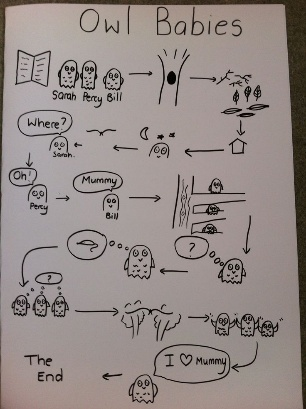 Owl Babies
Sarah Percy Bill
Where?
Sarah.
Oh!
Percy
Mummy
Bill
?
?
I ♡ Mummy
The
End